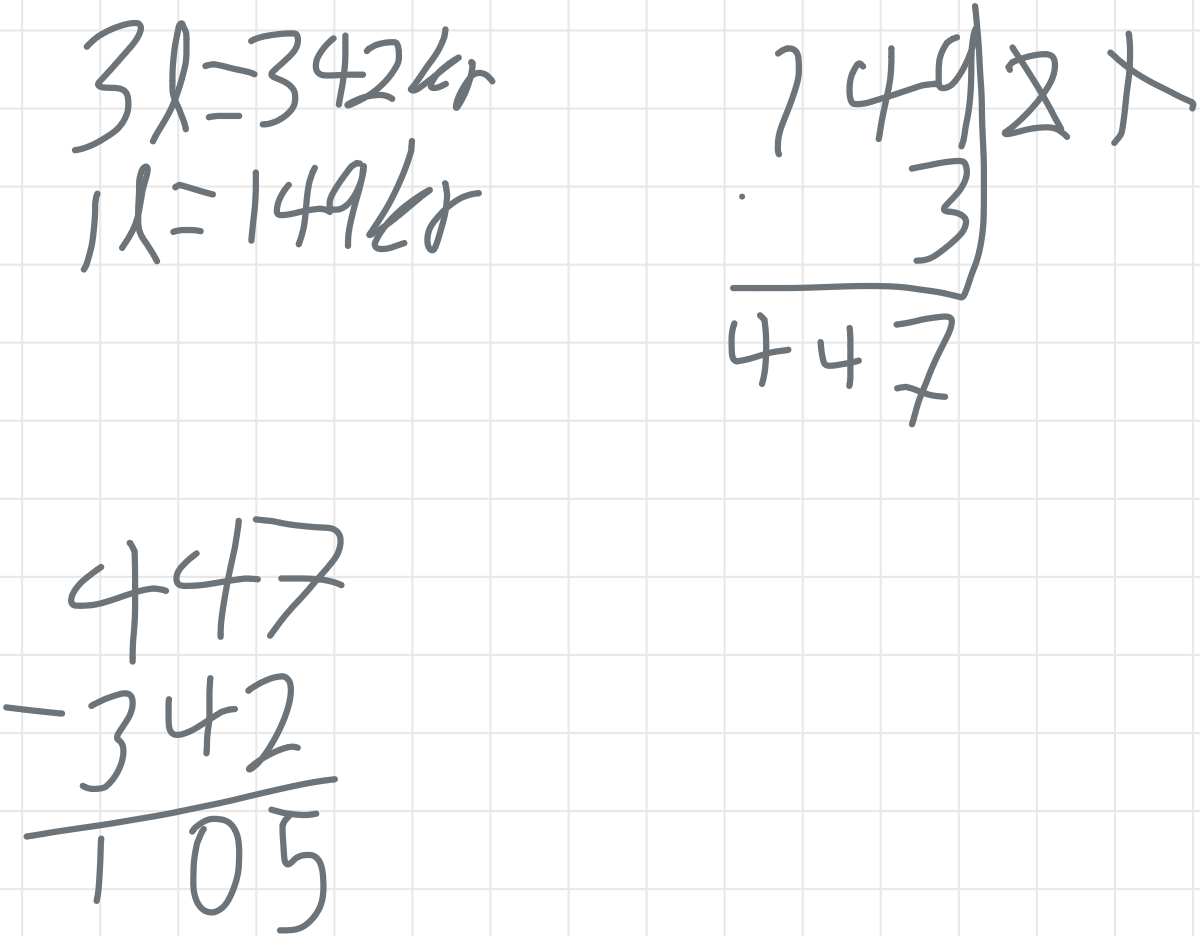 3l=342kr
1l=149kr
149
3
447
447
-342
105